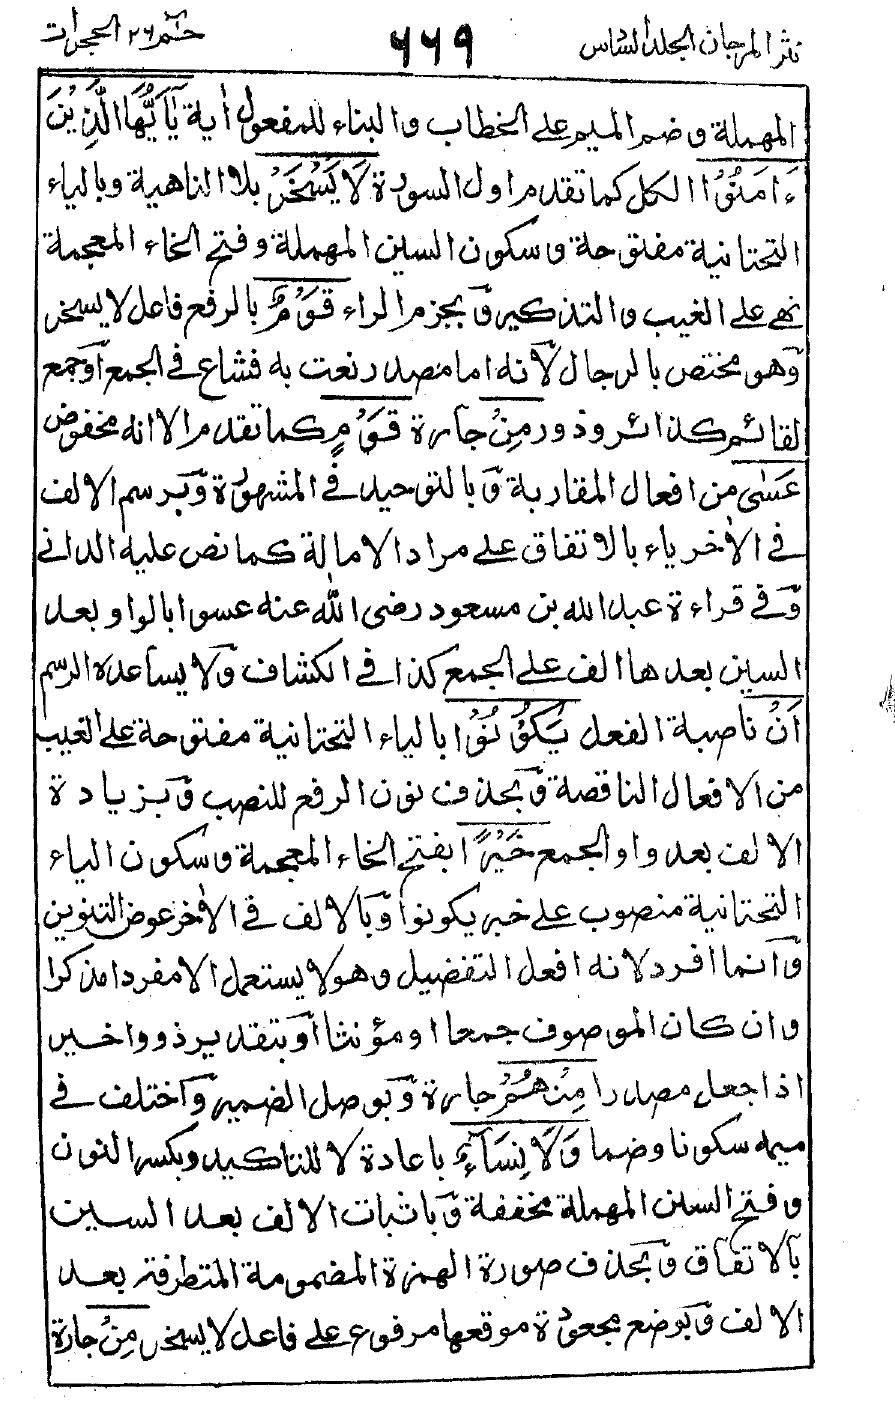 نثر المرجان الجلد السادس ٦٦٩ حٰم ٢٦ الحجرات
المهملة وضم الميم على الخطاب والبناء للمفعول اية يٰٓاَيُّهَا الَّذِيْنَ
ءَامَنُوْا الكل كما تقدم اول السورة لَا يَسْخَرْ بلا الناهية وبالياء
التحتانية مفتوحة وسكون السين المهملة وفتح الخاء المعجمة
نهى على الغيب والتذكير وبجزم الراء قَوْمٌ بالرفع فاعل لا يسخر
وهو مختص بالرجال لانه اما مصدر نعت به فشاع فى الجمع اوجمع
لقائم كذائر وذور مِنْ جارة قَوْمٍ كما تقدم الا انه مخفوض
عَسٰى من افعال المقاربة وبالتوحيد فى المشهورة وبرسم الالف
فى الاخر ياء بالاتفاق على مراد الامالة كما نص عليه الدانى
وفى قراءة عبد الله بن مسعود رضى الله عنه عسوا بالواو بعد
السين بعدها الف على الجمع كذا فى الكشاف ولا يساعده الرسم
اَنْ ناصبة الفعل يَكُوْنُوْا بالياء التحتانية مفتوحة على الغيب
من الافعال الناقصة وبحذف نون الرفع للنصب وبزيادة
الالف بعد واو الجمع خَيْرًا بفتح الخاء المعجمة وسكون الياء
التحتانية منصوب على خبر يكونوا وبالالف فى الاخر عوض التنوين
وانما افرد لانه افعل التفضيل وهو لا يستعمل الا مفردا مذكرا
وان كان الموصوف جمعا او مؤنثا او بتقدير ذووا خير
اذا جعل مصدرا مِنْهُمْ جارة وبوصل الضمير واختلف فى
ميمه سكونا وضما وَلَا نِسَآءٌ باعادة لا للتاكيد وبكسر النون
وفتح السين المهملة مخففة وباثبات الالف بعد السين
بالاتفاق وبحذف صورة الهمزة المضمومة المتطرفة بعد
الالف وبوضع مجعودة موقعها مرفوع على فاعل لا يسخر مِنْ جارة